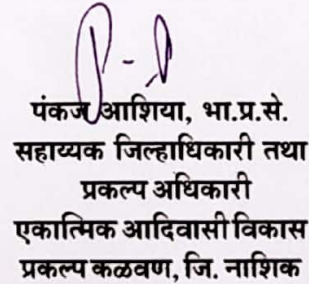 पंकज आशिया, भा.प्र.से.
सहाय्यक जिल्हाधिकारी तथा
प्रकल्प अधिकारी
एकात्मिक आदिवासी विकास
प्रकल्प कळवण, जि. नाशिक